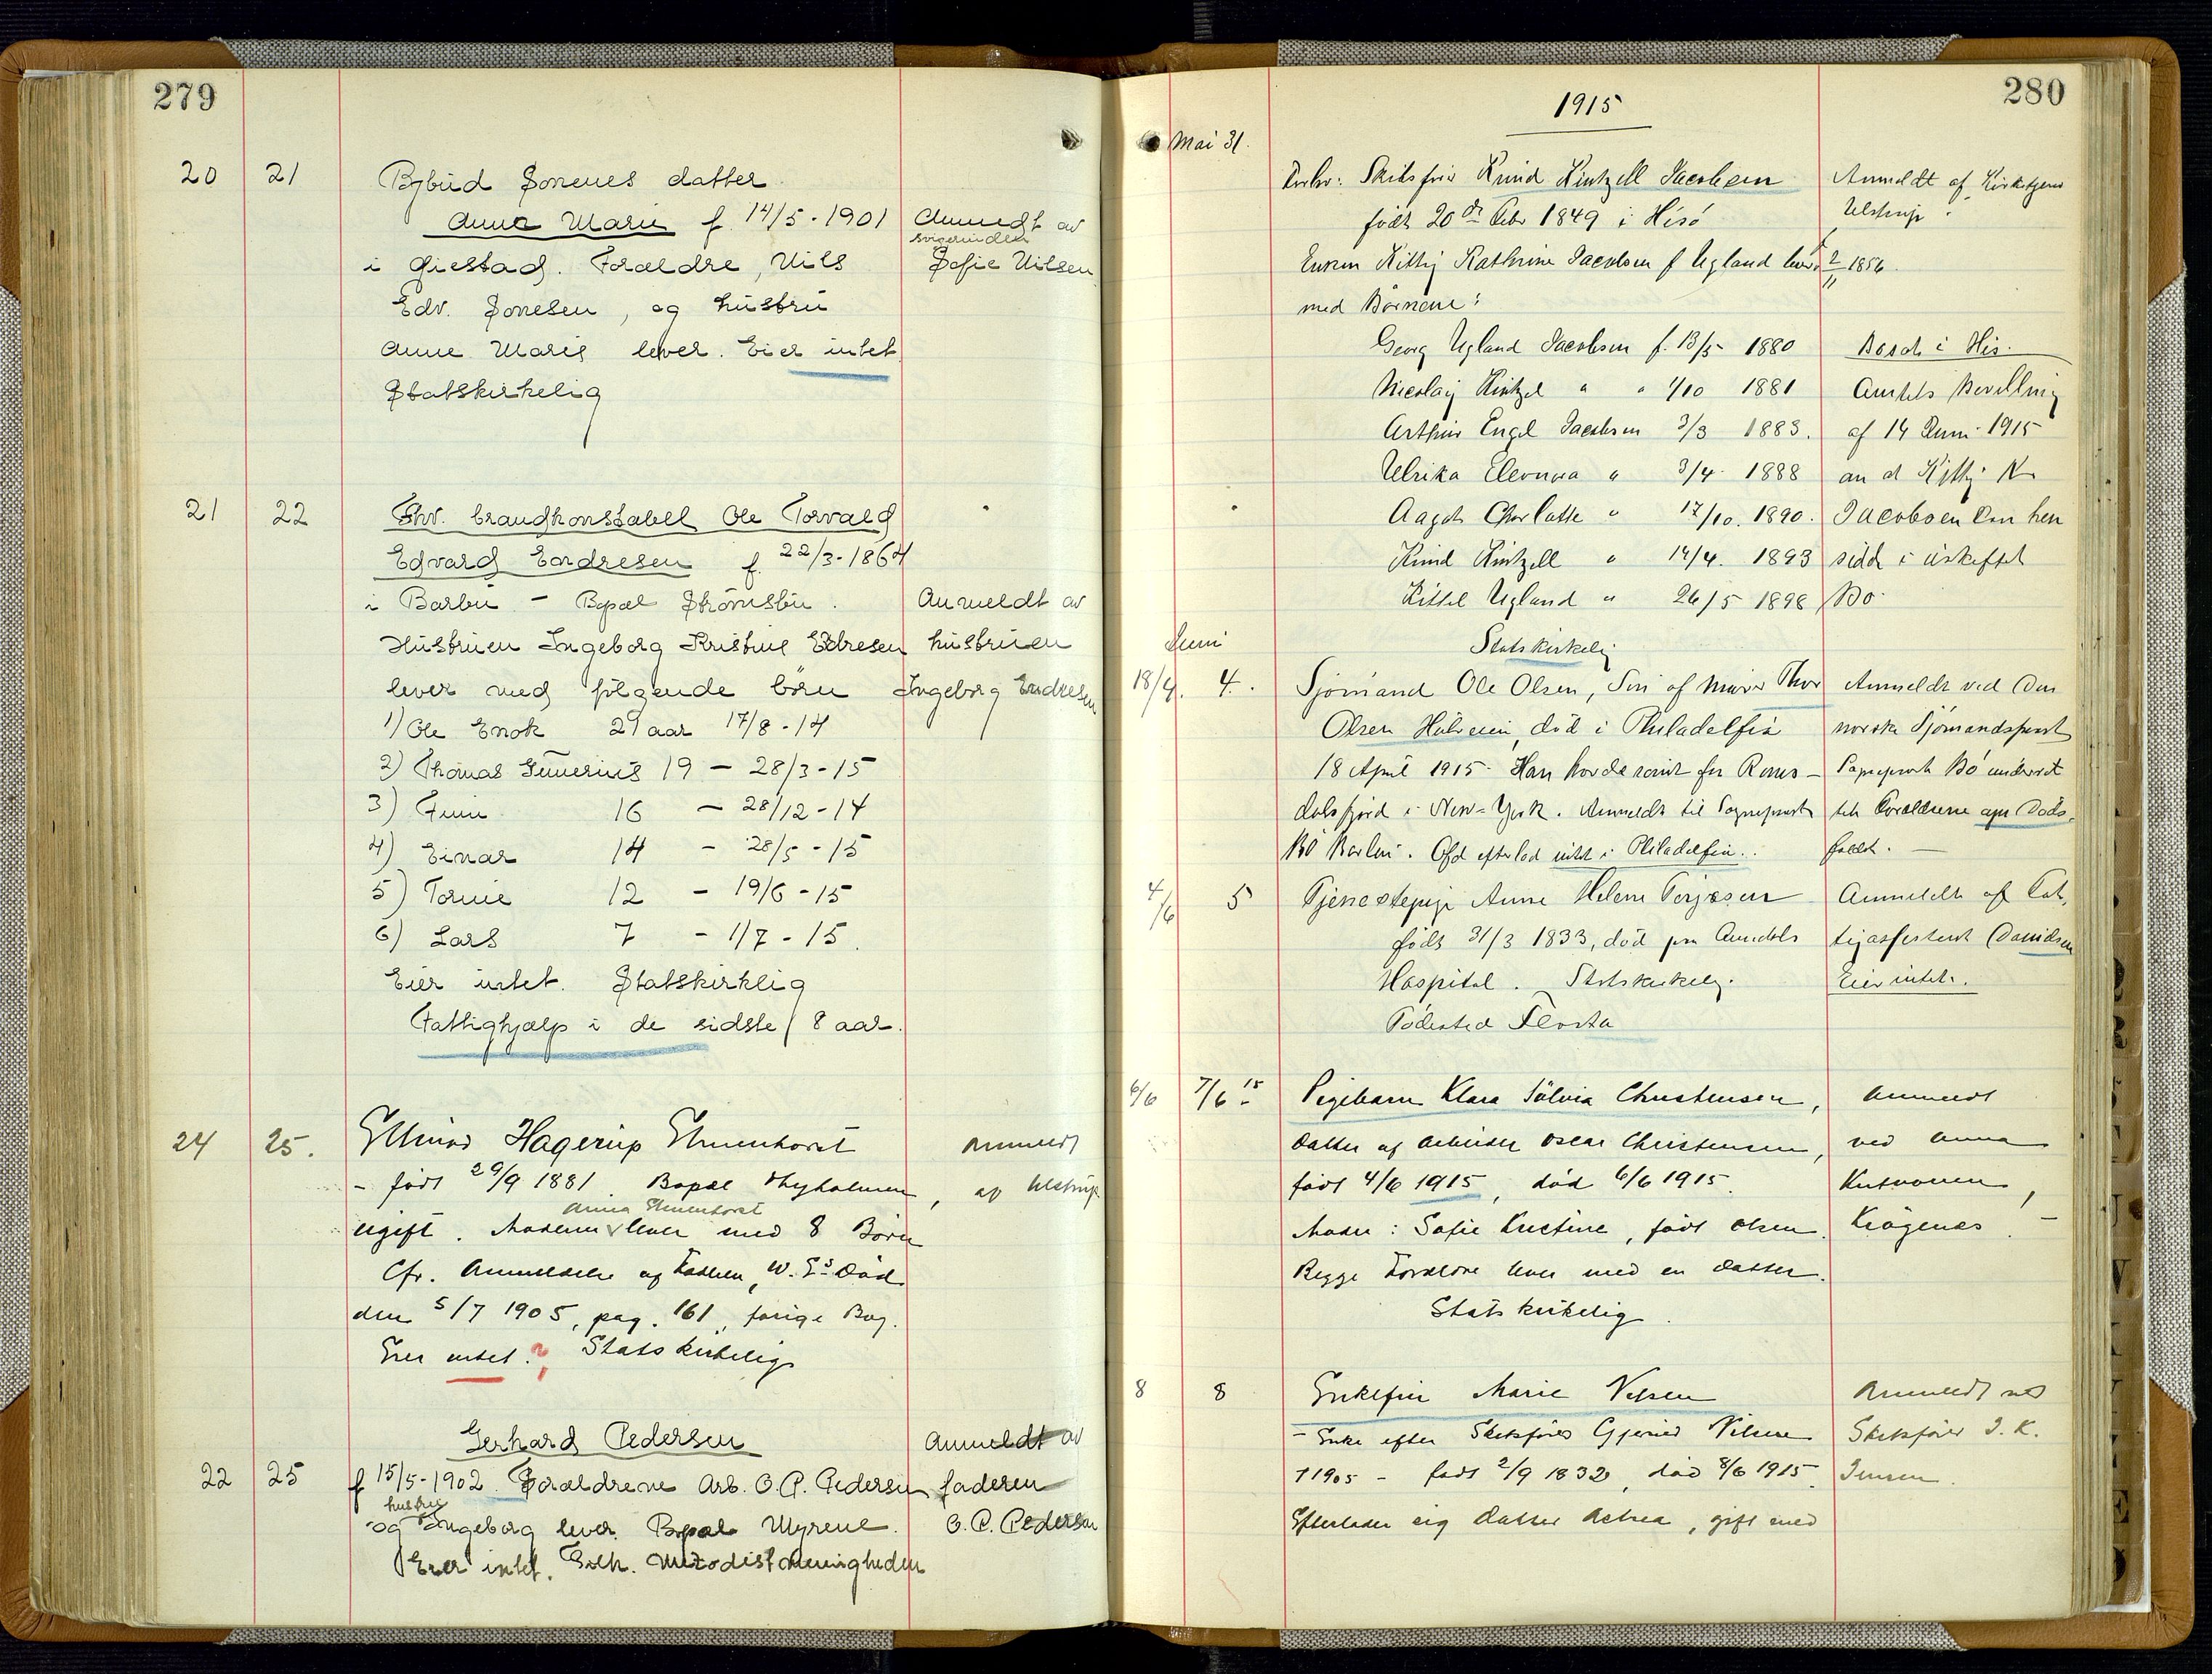 279
20 21 Bybud Jonenes datter Anmeldt av
Anne Marie f. 14/5-1901 svigerinden
i Giestad. Foraeldre, Nils Sofie Nilsen
Edv. Jonesen, og hustru
Anne Marie lever. Eier intet
Statskirkelig
21 22 Fhv. brandkonstabell Ole Torvald
Edvard Endresen f. 22/3-1864
i Barbu - Bopæl Strömsbu. Anmeldt av
Hustruen Ingeborg Kristine Edresen hustruen
lever med følgende børn Ingeborg Endresen
1) Ole Enok 21 aar 17/8-14
2) Thomas Gunerius 19 - 28/3-15
3) Finn 16 - 28/12-14
4) Einar 14 - 28/5-15
5) Tomine 12 - 19/6-15
6) Lars 7 - 1/7-15.
Eier intet. Statskirklig
Fattighjælp i de sidste 8 aar.
24 25. Hagerup Anmeldt
- født 29/9 1881. Bopæl Thyholmen, af Ulstrup
ugift. Moderen Anna lever med 8 Börn
Cfr. Anmeldelse og Faderen, W. E's Død
den 5/7 1905, pag. 161, forige Bog.
Eier intet.? Statskirkelig
Gerhard Pedersen Anmeldt av
22 25 f 15/5-1902. Foraeldrene Arb. O. P. Pedersen faderen
hustru
og Ingeborg lever. Bopæl Myrene. O. P. Pedersen
Eier intet. Metodistmenigheden
280
1915
Mai 31.
Skibsfører Knud Kintzell Jacobsen Anmeldt af
født 20de Febr 1849 i Hisö Ulstrup.
Enken Kitty Kathrine Jacobsen f Ugland lever f. 2/11 1856.
med Börnene:
Georg Ugland Jacobsen f. 13/5 1880 Bosat i His.
Nicolay Kintzel " " 4/10 1881 Amtets Bevilling
Arthur Engel Jacobsen 3/3 1883. af 14 Juni 1915
Ulrika Eleonora " 3/4 1888 K.
Aagot Charlotte " 17/10. 1890. Jacobsen kan hen
Knud Kintzell " 14/4. 1893 sidde i uskiftet
Kittel Ugland " 26/5 1898 Bo.
Statskirkelig
Juni
18/4. 4. Sjömand Ole Olsen, Sön af Murer Thor Anmeldt ved den
Olsen, död i Philadelfia norske Sjömandsprest
18 April 1915. Han for Roms- Sogneprest Bö underret
dalsfjord i New-York. Anmeldt til Sogneprest Forældrene om Döds-
Bö Barbu. Afd efterlod intet i Philadelfia. faldet.
4/6 5 Tjenestepige Anne Helene Terjesen Anmeldt af Fat-
født 31/3 1833, död paa Arendals tigasistent Danielsen
Hospital. Statskirkelig. Eier intet.
Födested Flosta
6/6 7/6 15 Pigebarn Klara Sölvia Christensen, Anmeldt
Datter af Arbeider Oscar Christensen, ved Anna
født 4/6 1915, död 6/6 1915. Knutsonen,
Moder: Sofie Kristine, født Olsen. Krögenes.
Begge Forældre lever med en datter.
Statskirkelig.
8 8 Enkefru Marie Nilsen Anmeldt ved
- Enke efter Skibsfører Gjerud Nilsen Skibsfører J. K.
† 1905 - født 2/9 1832, død 8/6 1915. Jensen.
Efterlader sig datter Astrea, gift med